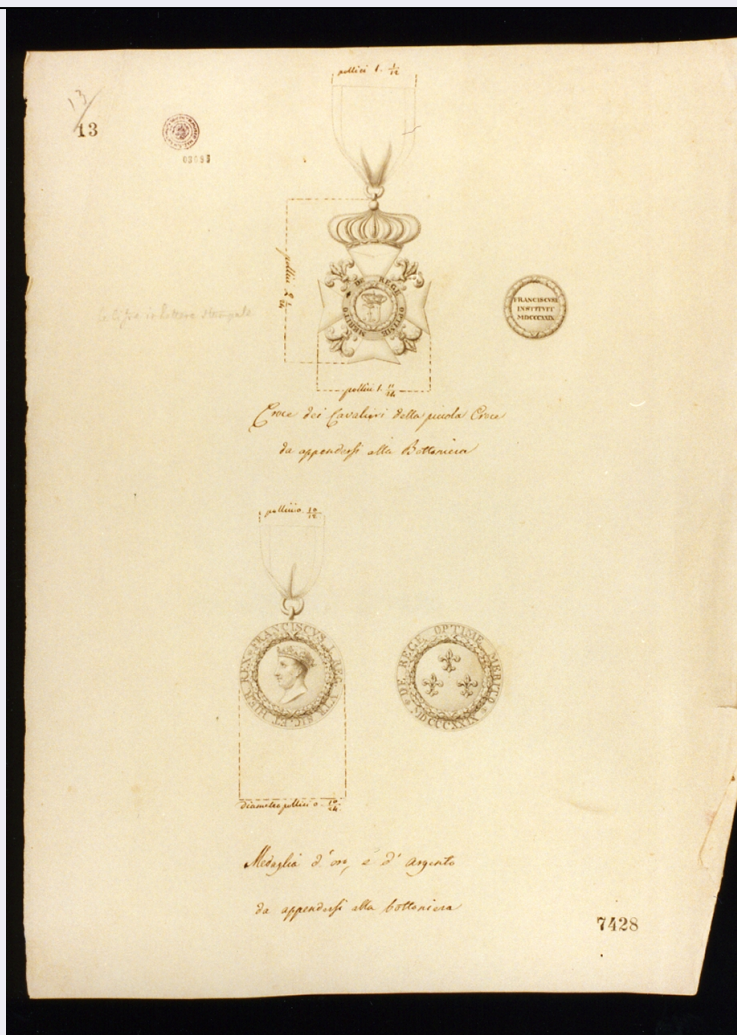 pollici 1. 1/12
13
13
03093
pollici 2
DE REGE OPTIME MERITO
FRANCISCVS I
INSTITVIT
MDCCCXXIX
pollici 1. 11/12
Croce dei Cavalieri della piccola Croce
da appendersi alla Bottoniera
pollici 0. 10/12
FRANCISCVS I REG. VTR. SIC. ET HIER. REX
DE REGE OPTIME MERITO MDCCCXXIX
diametro pollici 0. 10/12
Medaglia d'oro, e d'argento
da appendersi alla bottoniera
7428